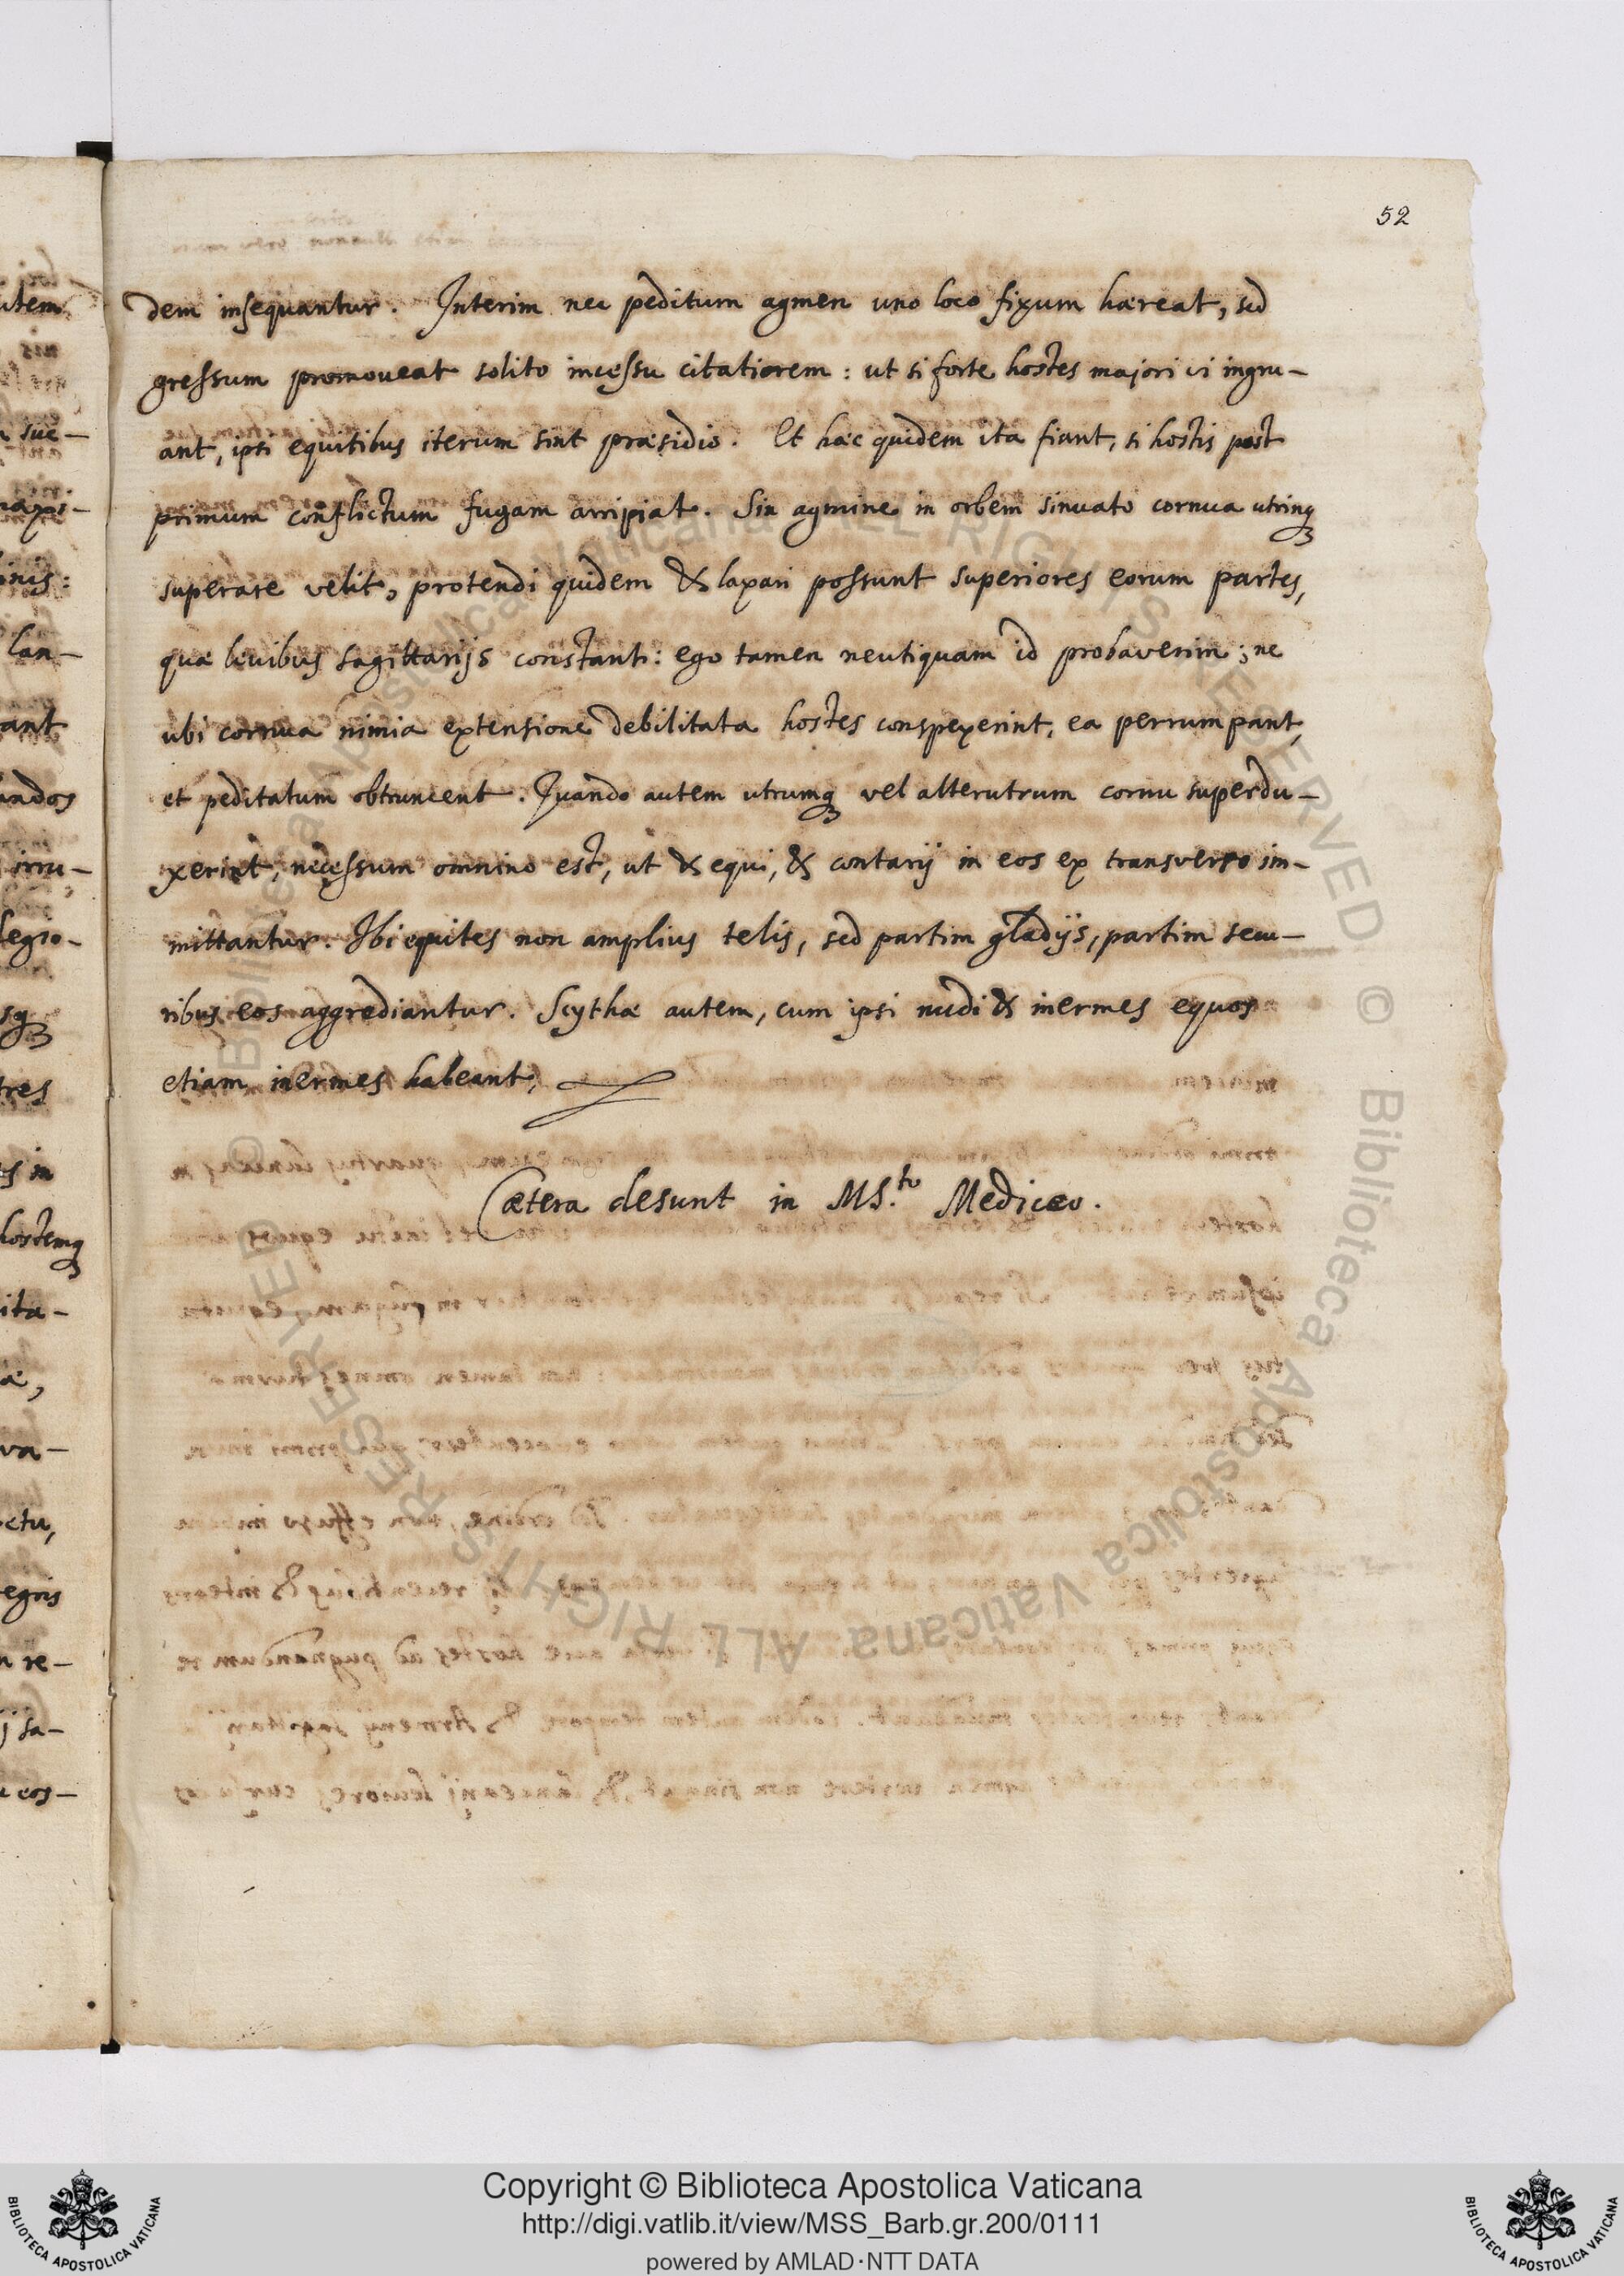 52
dem insequantur. Interim nec peditum agmen uno loco fixum hæreat, sed
gressum promoveat solito incessu citatiorem: ut si forte hostes majori vi ingru-
ant, ipsi equitibus iterum sint præsidio. Et hæc quidem ita fiant, si hostis post
primum conflictum fugam arripiat. Sin agmine in orbem sinuato cornua utrinq3
superare velit, protendi quidem & laxari possunt superiores eorum partes,
quæ levibus sagittarijs constant: ego tamen neutiquam id probaverim; ne
ubi cornua nimia extensione debilitata hostes conspexerint, ea perrumpant,
et peditatum obtruncent. Quando autem utrumq3 vel alterutrum cornu superdu-
xerint, necessum omnino est, ut & equi, & contarij in eos ex transverso im-
mittantur. Ibi equites non amplius telis, sed partim gladijs, partim secu-
ribus eos aggrediantur. Scythæ autem, cum ipsi nudi & inermes equos
etiam inermes habeant,
Cætera desunt in MS.to Mediceo.
utem
nis
sue-
maxi-
inis:
lan-
ant
andos
irru-
legio-
sq3
tres
es in
hostemq3
ita-
æ,
va-
ctu,
egris
n re-
j sa-
eos-
© Biblioteca Apostolica Vaticana ALL RIGHTS RESERVED
© Biblioteca Apostolica Vaticana ALL RIGHTS RESERVED
BIBLIOTECA APOSTOLICA VATICANA
Copyright © Biblioteca Apostolica Vaticana
http://digi.vatlib.it/view/MSS_Barb.gr.200/0111
powered by AMLAD·NTT DATA
BIBLIOTECA APOSTOLICA VATICANA